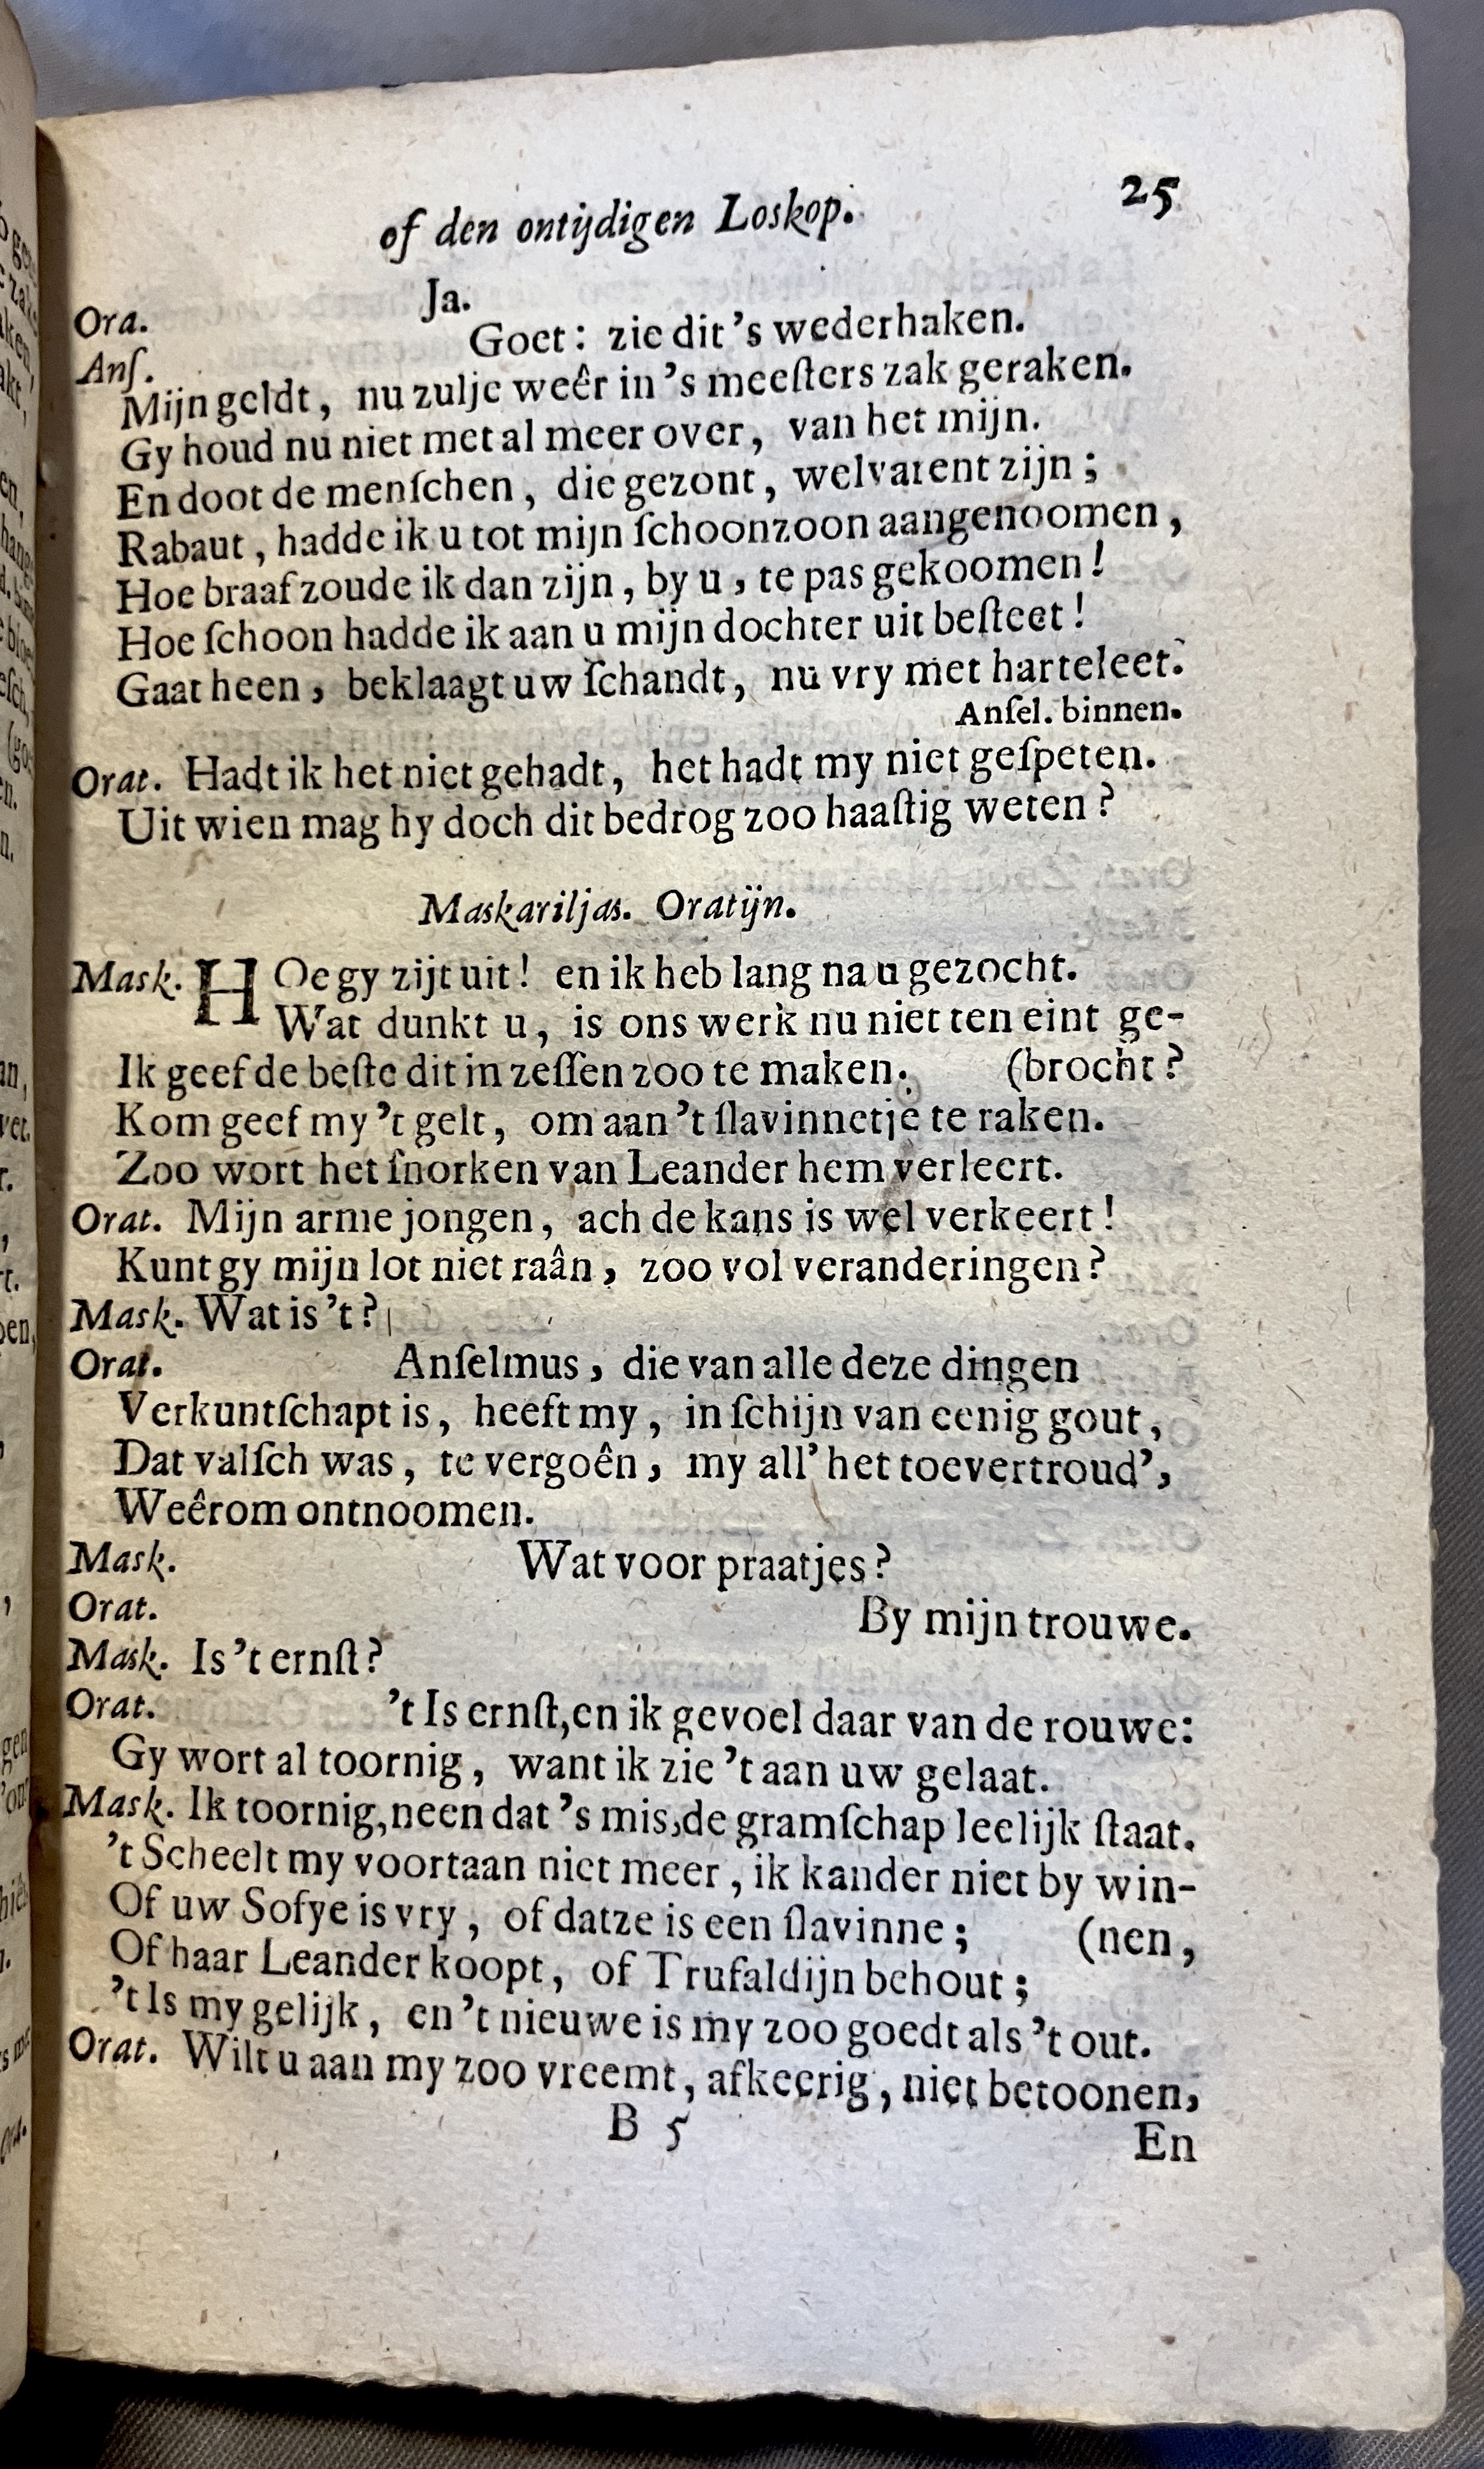 of den ontijdigen Loskop. 25
Ora. Ja.
Anſ. Goet: zie dit 's wederhaken.
Mijn geldt, nu zulje weêr in 's meeſters zak geraken.
Gy houd nu niet met al meer over, van het mijn.
En doot de menſchen, die gezont, welvarent zijn;
Rabaut, hadde ik u tot mijn ſchoonzoon aangenoomen,
Hoe braaf zoude ik dan zijn, by u, te pas gekoomen!
Hoe ſchoon hadde ik aan u mijn dochter uit beſteet!
Gaat heen, beklaagt uw ſchandt, nu vry met harteleet.
Anſel. binnen.
Orat. Hadt ik het niet gehadt, het hadt my niet geſpeten.
Uit wien mag hy doch dit bedrog zoo haaſtig weten?
Maskariljas. Oratijn.
Mask. HOe gy zijt uit! en ik heb lang na u gezocht.
Wat dunkt u, is ons werk nu niet ten eint ge-
Ik geef de beſte dit in zeſſen zoo te maken. (brocht?
Kom geef my 't gelt, om aan 't ſlavinnetje te raken.
Zoo wort het ſnorken van Leander hem verleert.
Orat. Mijn arme jongen, ach de kans is wel verkeert!
Kunt gy mijn lot niet raân, zoo vol veranderingen?
Mask. Wat is 't?
Orat. Anſelmus, die van alle deze dingen
Verkuntſchapt is, heeft my, in ſchijn van eenig gout,
Dat valſch was, te vergoên, my all' het toevertroud',
Weêrom ontnoomen.
Mask. Wat voor praatjes?
Orat. By mijn trouwe.
Mask. Is 't ernſt?
Orat. 't Is ernſt, en ik gevoel daar van de rouwe:
Gy wort al toornig, want ik zie 't aan uw gelaat.
Mask. Ik toornig, neen dat 's mis, de gramſchap leelijk ſtaat.
't Scheelt my voortaan niet meer, ik kander niet by win-
Of uw Sofye is vry, of datze is een ſlavinne; (nen,
Of haar Leander koopt, of Trufaldijn behout;
't Is my gelijk, en 't nieuwe is my zoo goedt als 't out.
Orat. Wilt u aan my zoo vreemt, afkeerig, niet betoonen,
B 5 En